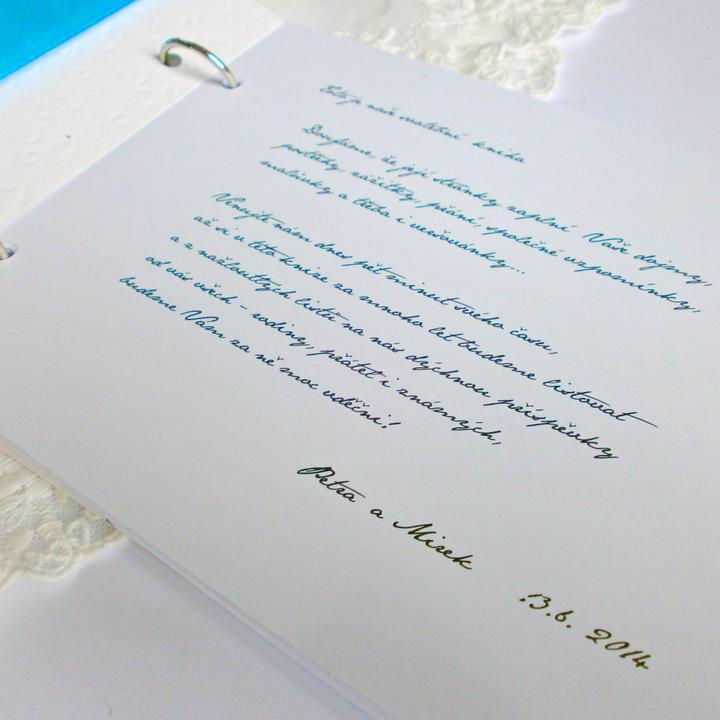 Toto je naše svatební kniha
Doufáme, že její stránky zaplní Vaše dojmy,
postřehy, zážitky, přání, společné vzpomínky,
malůvky a třeba i veršovánky...
Věnujte nám dnes pět minut svého času,
až si v této knize za mnoho let budeme listovat
a z nažloutlých listů na nás dýchnou příspěvky
od vás všech - rodiny, přátel i známých,
budeme Vám za ně moc vděčni!
Petra a Mirek 13.6. 2014